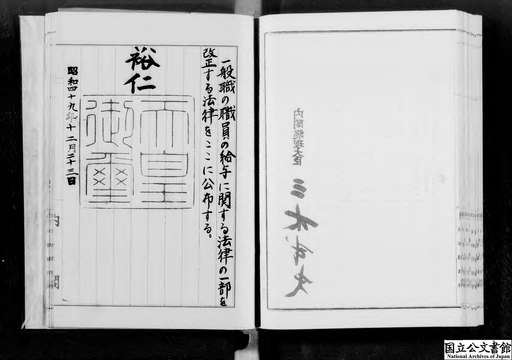 一般職の職員の給与に関する法律の一部を
改正する法律をここに公布する。
裕仁
天皇
御璽
昭和四十九年十二月二十三日
内閣
内閣総理大臣
三木武夫
国立公文書館
National Archives of Japan